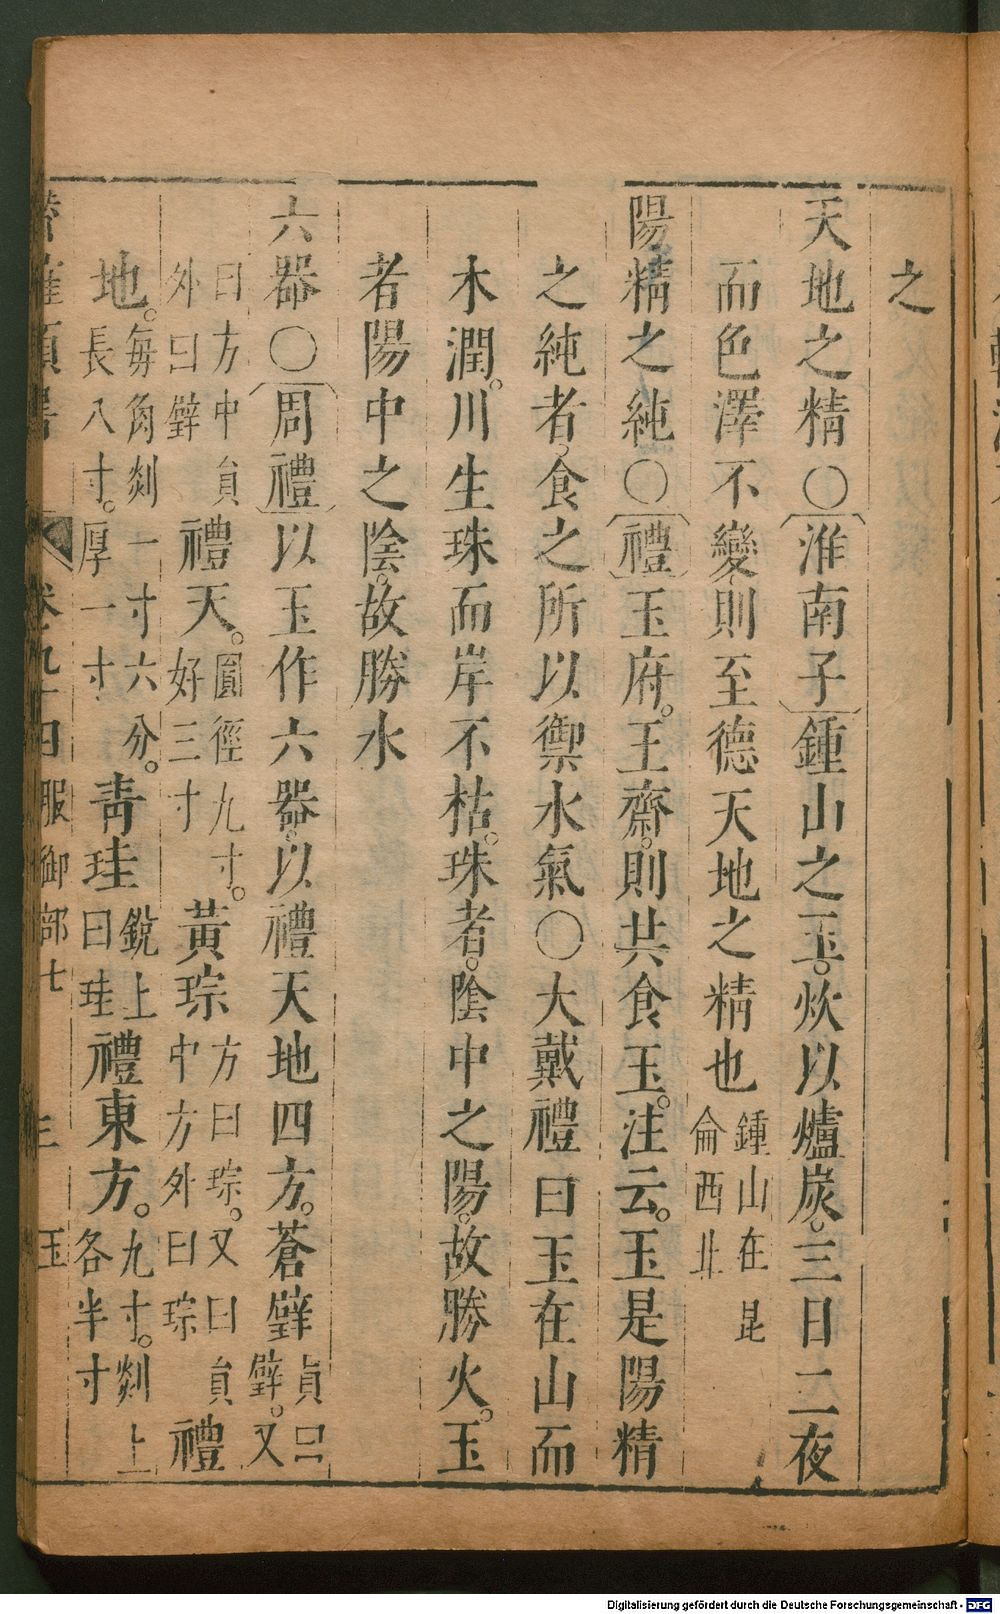 之
天地之精〇淮南子鍾山之玉。炊以爐炭。三日二夜
而色澤不變則至德天地之精也鍾山在昆侖西北
陽精之純〇禮玉府。王齋。則共食玉。注云。玉是陽精
之純者。食之所以禦水氣〇大戴禮曰玉在山而
木潤。川生珠而岸不枯。珠者。陰中之陽。故勝火。玉
者陽中之陰。故勝水
六器〇周禮以玉作六器。以禮天地四方。蒼璧員曰璧。又
曰方中員外曰璧禮天。圓徑九寸。好三寸黃琮方曰琮。又曰員中方外曰琮禮
地。每角剡一寸六分。長八寸。厚一寸青珪銳上曰珪禮東方。九寸。剡上各半寸
卷九十四 服御部七 三 玉
Digitalisierung gefördert durch die Deutsche Forschungsgemeinschaft - DFG